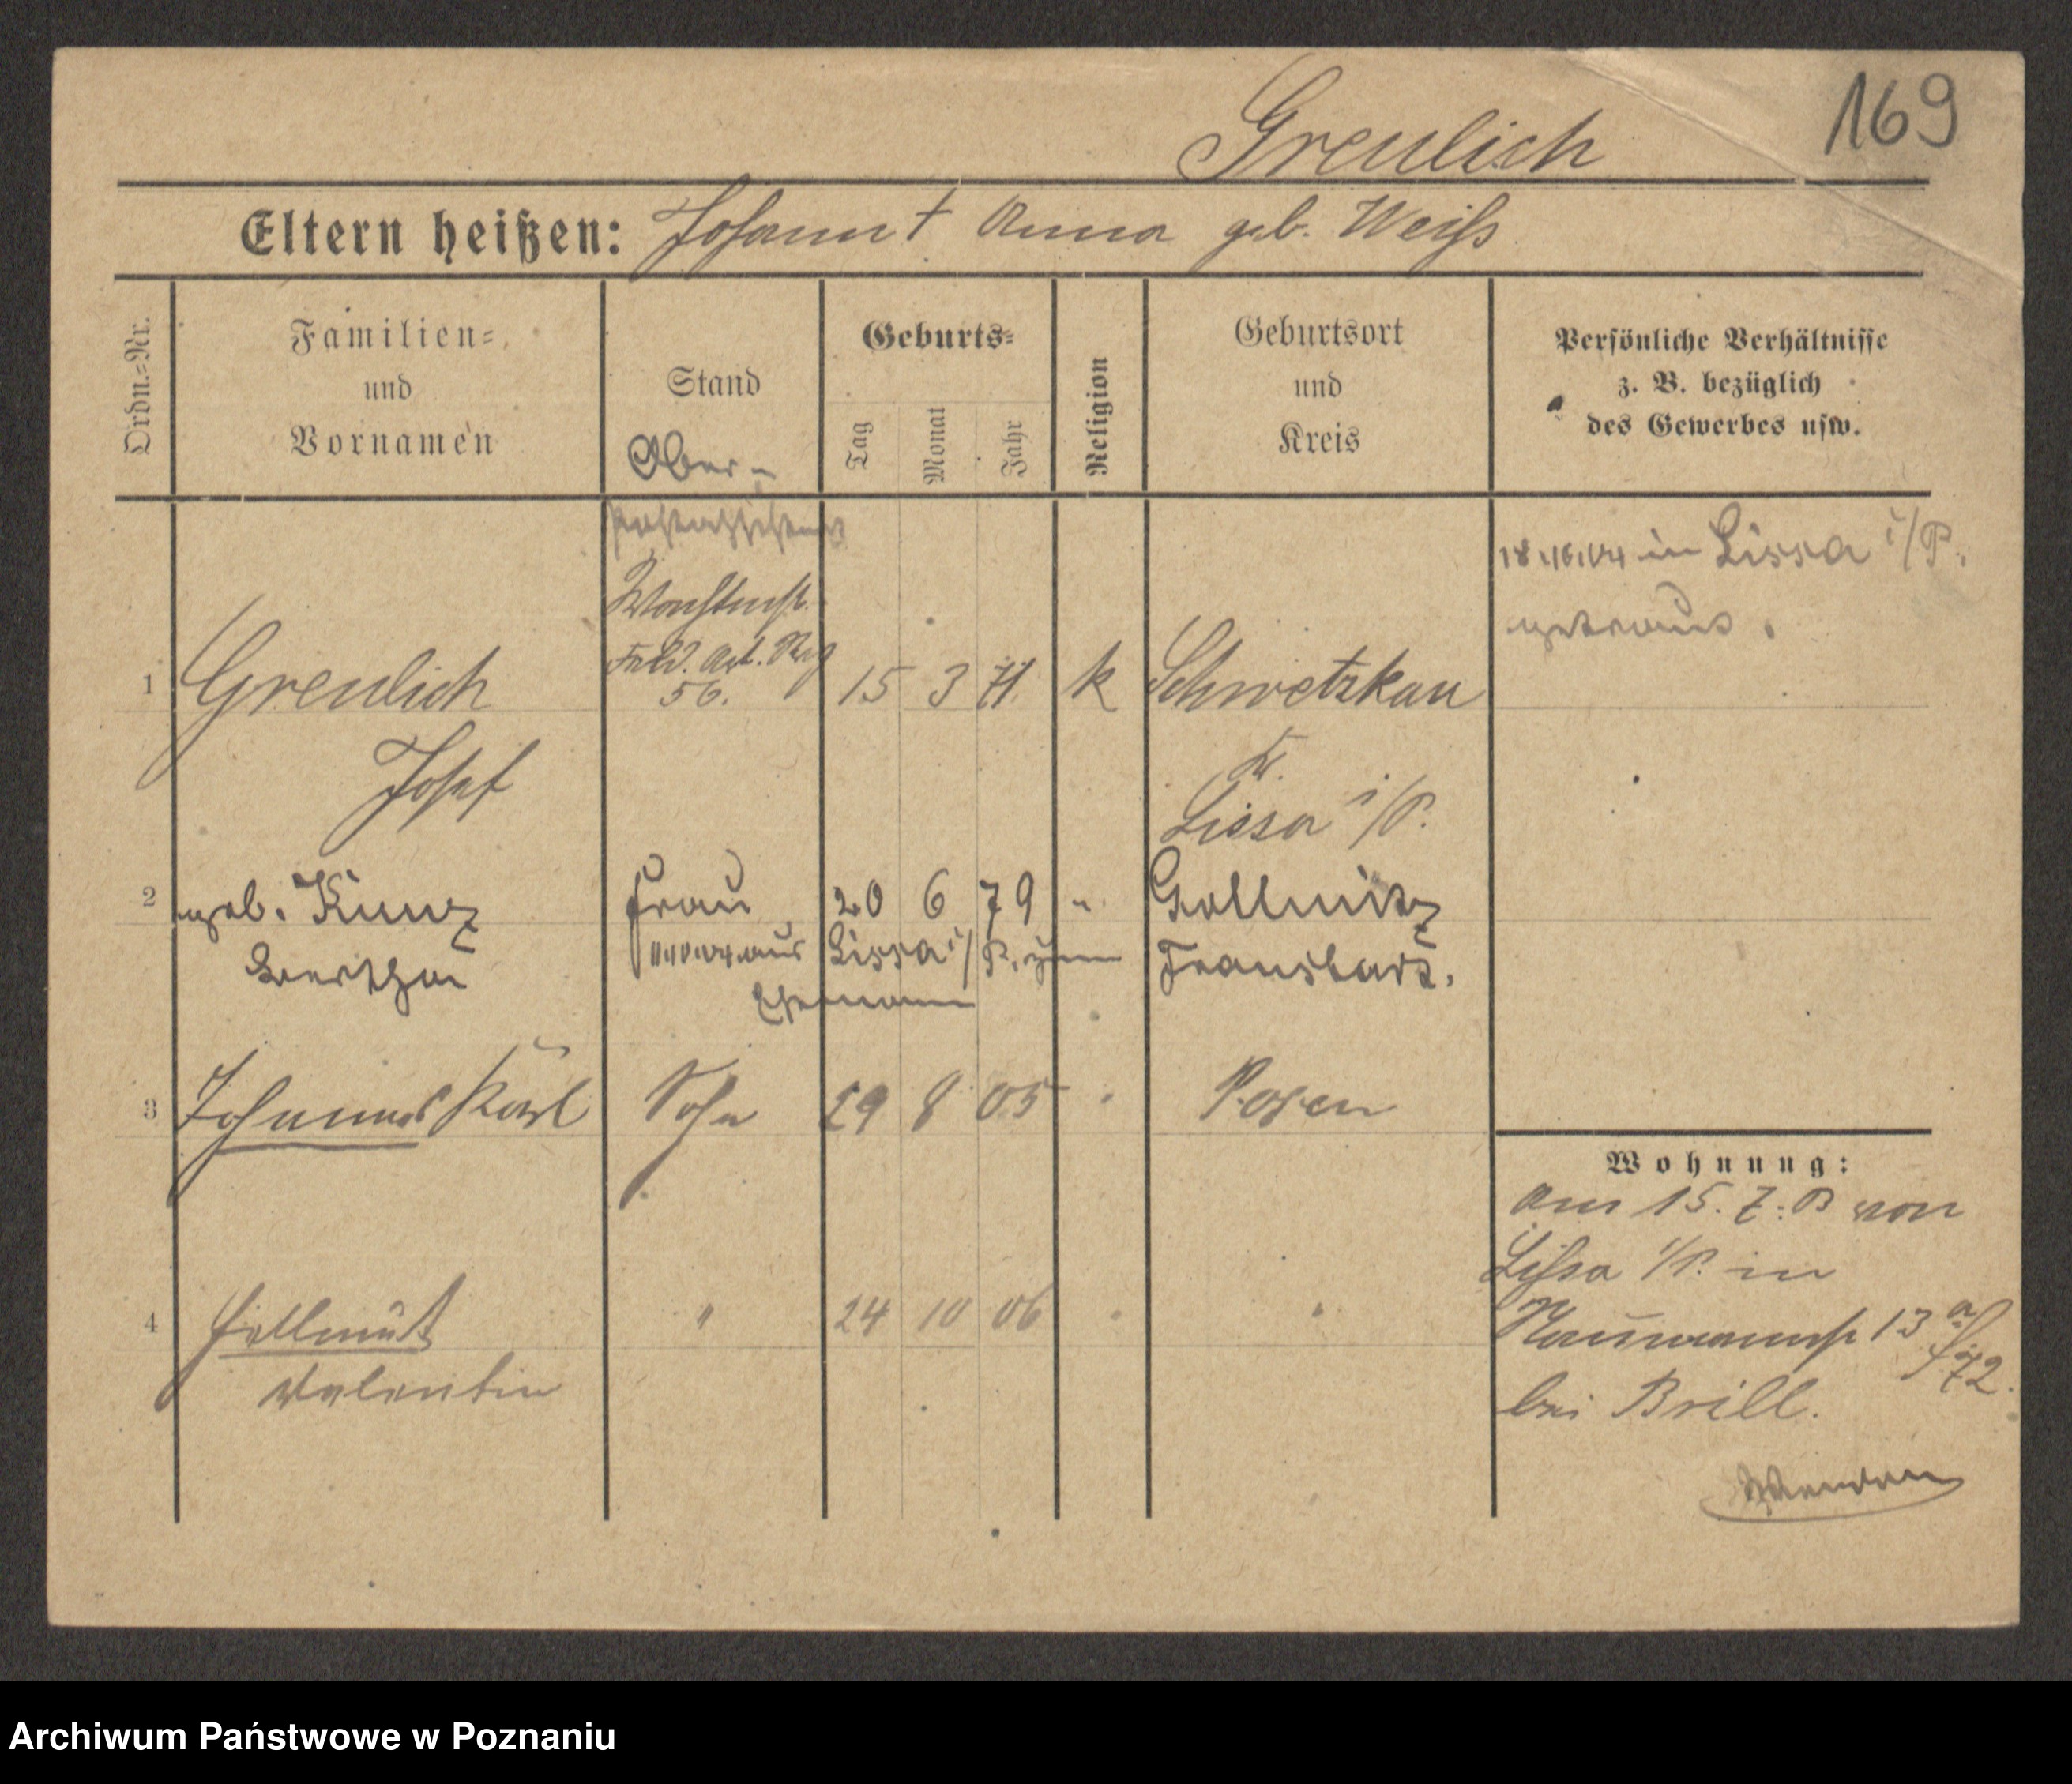 169
Greulich
Eltern heißen: Johann † Anna geb. Weiß
Ordn.=Nr.
Familien=
und
Vornamen
Stand
Geburts=
Tag
Monat
Jahr
Religion
Geburtsort
und
Kreis
Persönliche Verhältnisse
z. B. bezüglich
des Gewerbes usw.
Ober-
Postassistent
Wachtmstr.
Feld. Art. Reg
56.
in Lissa i/P.
getraut.
1 Greulich 15 3 71 k Schwetzkau
Josef Kr.
Lissa i/P.
2 geb. Kunz Frau 20 6 79 " Gollmitz
Bertha aus Lissa i/P. zum Fraustadt.
Ehemann
3 Johannes Karl Sohn 29 8 05 " Posen
4 Hellmut " 24 10 06 " "
Valentin
Wohnung:
am 15. 7. von
Lissa i/P. in
Naumannstr 13 a
72.
bei Brill.
Archiwum Państwowe w Poznaniu